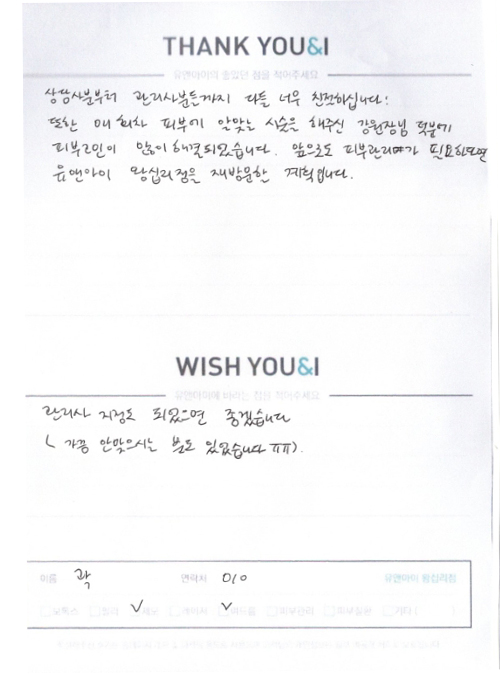 THANK YOU&I
유앤아이의 좋았던 점을 적어주세요
상담사분부터 관리사분들까지 다들 너무 친절하십니다!
또한 매 회차 피부에 알맞는 시술을 해주신 강원장님 덕분에
피부고민이 많이 해결되었습니다. 앞으로도 피부관리가 필요하다면
유앤아이 왕십리점을 재방문할 계획입니다.
WISH YOU&I
유앤아이에 바라는 점을 적어주세요
관리사 지정도 되었으면 좋겠습니다
( 가끔 안맞으시는 분도 있었습니다 ㅠㅠ).
이름 곽 연락처 010 유앤아이 왕십리점
보톡스 필러 제모 레이저 여드름 피부관리 기타 ( )